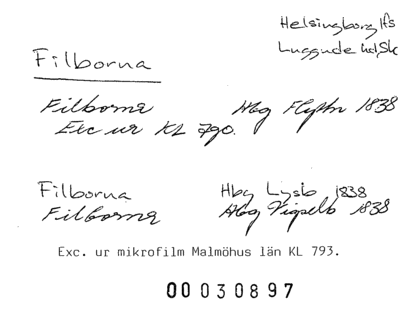 Helsingborg lfs
Luggude hd, Sk
Filborna
Filborna Hbg Flyttn 1838
Exc ur KL 790.
Filborna Hbg Lysb 1838
Filborna Hbg Vigselb 1838
Exc. ur mikrofilm Malmöhus län KL 793.
00030897